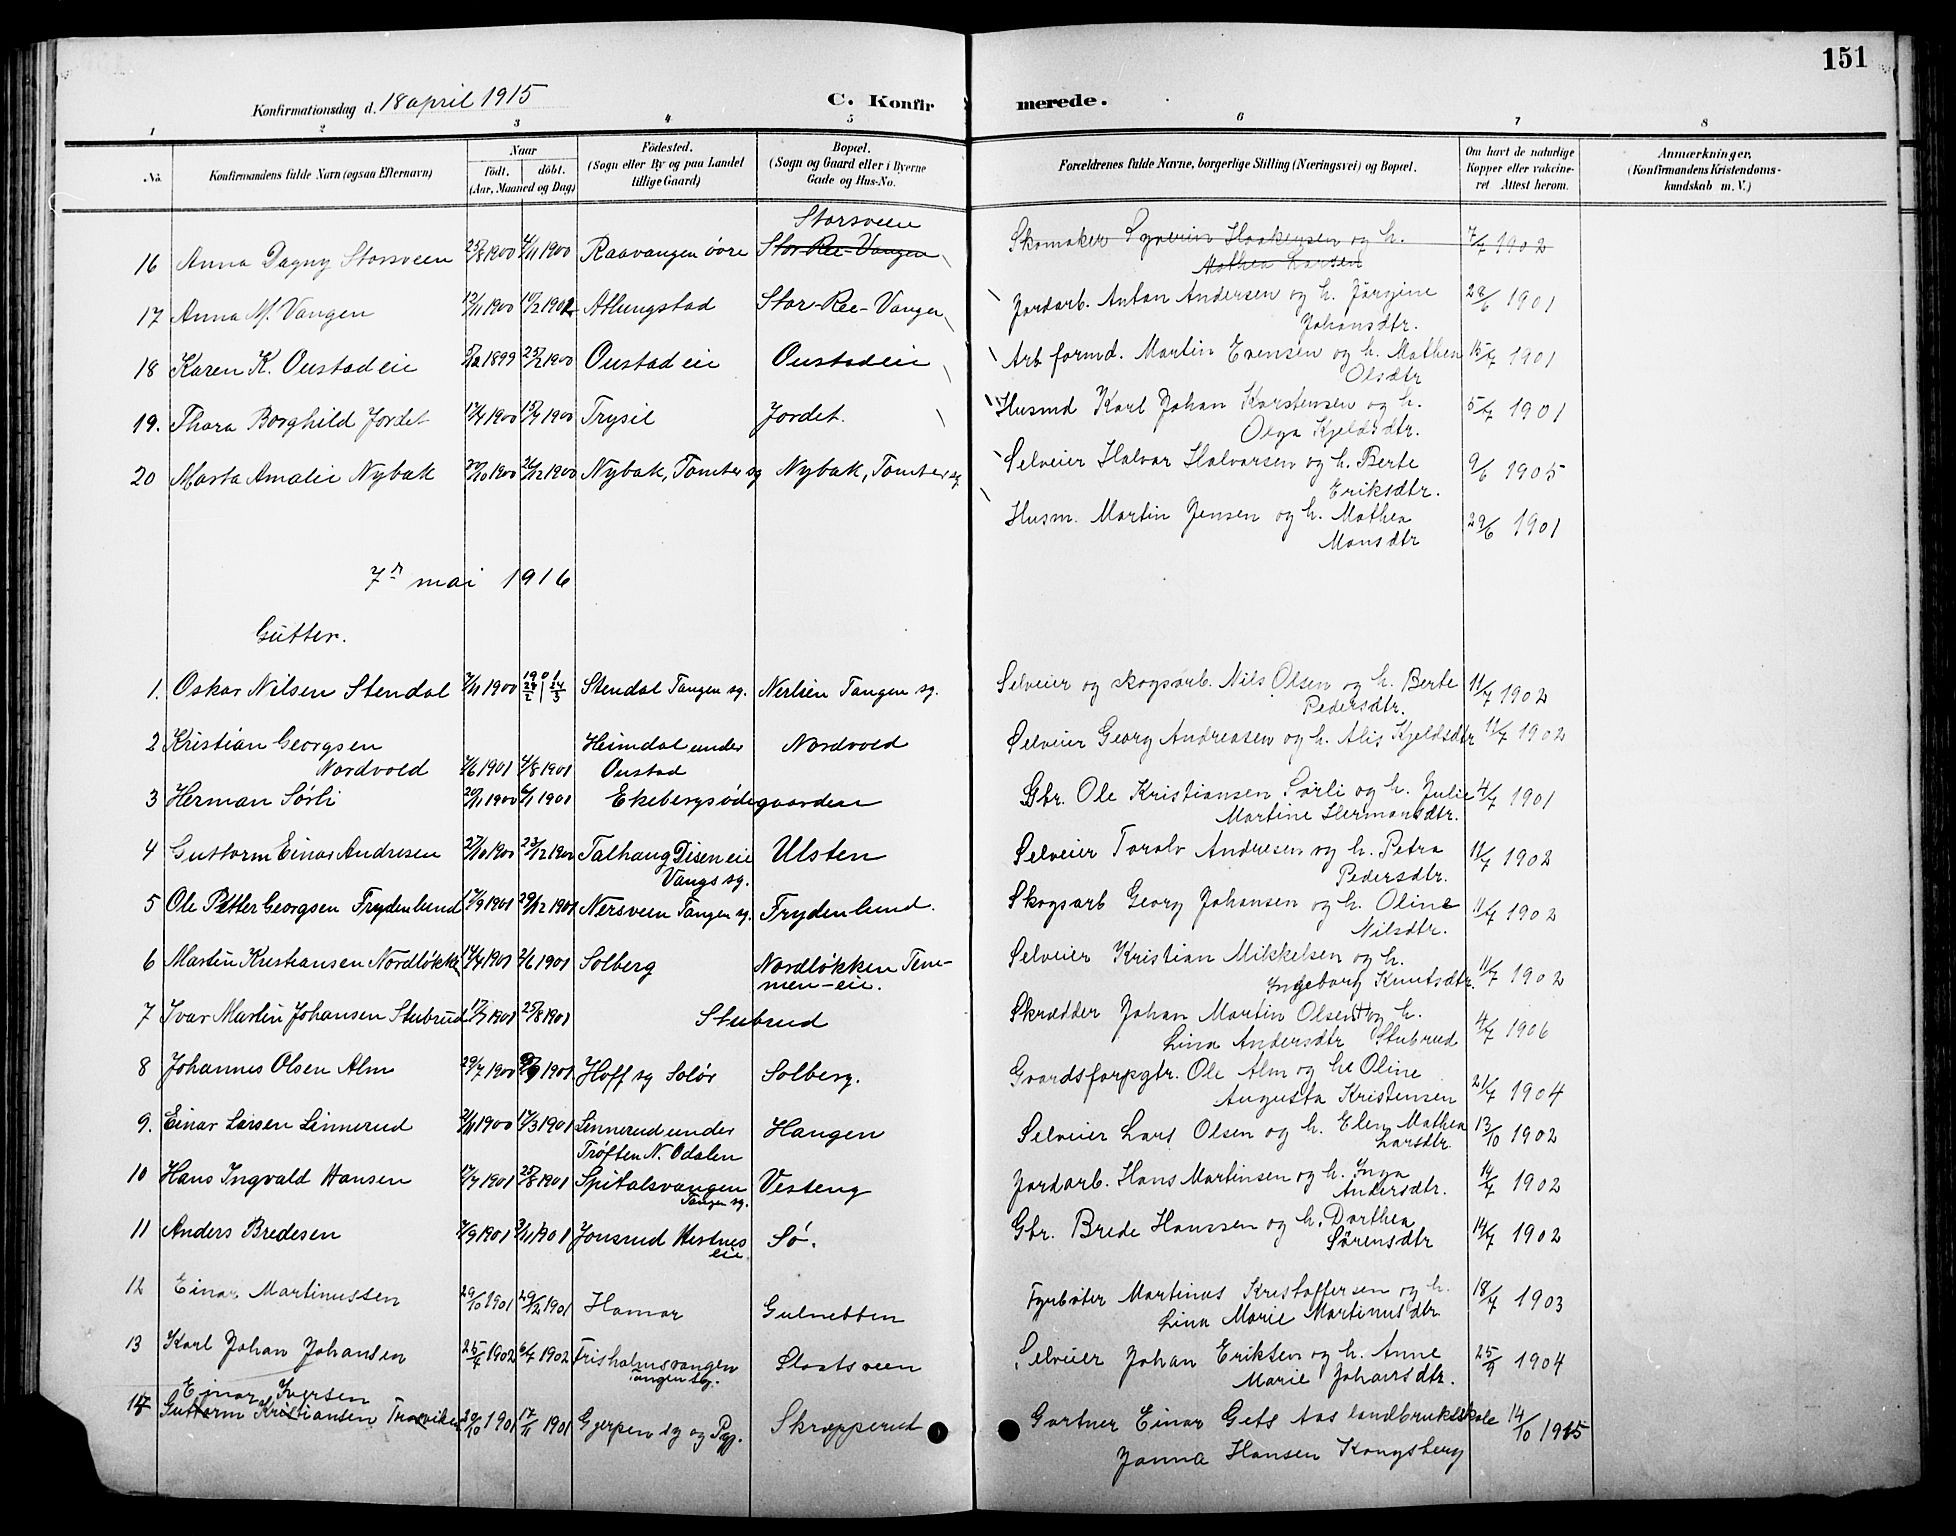 151
Konfirmationsdag d. 18 april 1915
C. Konfirmerede.
1 2 3 4 5 6 7 8
No.
Konfirmandens fulde Navn (ogsaa Efternavn)
Naar
født. døbt.
(Aar, Maaned og Dag)
Fødested.
(Sogn eller By og paa Landet
tillige Gaard)
Bopæl.
(Sogn og Gaard eller i Byerne
Gade og Hus-No.
Forældrenes fulde Navne, borgerlige Stilling (Næringsvei) og Bopæl.
Om havt de naturlige
Kopper eller vakcine-
ret Attest herom.
Anmærkninger.
(Konfirmandens Kristendoms-
kundskab m. V.)
Storsveen
16 Anna Dagny Storsveen 25/8 1900 4/11 1900 Raavangen øvre Stor-Ree-Vangen
Skomaker Syverin Haakensen og h. 7/7 1902
Mathea Larsen
17 Anna M. Vangen 12/11 1900 10/2 1901 Atlungstad Stor-Ree-Vangen
Jordarb. Anton Andersen og h. Jørgine 28/6 1901
Johansdtr.
18 Karen K. Oustadeie 5/12 1899 25/2 1900 Oustadeie Oustadeie
Arb formd. Martin Evensen og h. Mathea 15/7 1901
Olsdtr
19. Thora Borghild Jordet 17/4 1900 15/7 1900 Trysil Jordet.
Husmd Karl Johan Karstensen og h. 5/7 1901
Olga Kjeldsdtr.
20 Marta Amalie Nybak 20/10 1900 26/12 1900 Nybak, Tomter sg Nybak, Tomter sg
Selveier Halvor Halvorsen og h. Berte 9/6 1905
Eriksdtr.
Husm. Martin Jensen og h. Mathea 29/6 1901
Monsdtr
7 mai 1916
Gutter.
1. Oskar Nilsen Stendal 7/11 1900 1901 24/5 Stendal Tangen sg. Nerlien Tangen sg.
Selveier og skogsarb. Nils Olsen og h. Berte 11/7 1902
Pedersdtr.
2 Kristian Georgsen Heimdal under Nordvold
Nordvold 7/6 1901 4/8 1901 Oustad
Selveier Georg Andreasen og h. Alis Kjeldsdtr 11/7 1902
3 Herman Sørli 20/11 1900 6/1 1901 Ekebergsødegaarden
Gbr. Ole Kristiansen Sørli og h. Julie 4/7 1901
Martine Hermansdtr.
4 Guttorm Einar Andresen 27/10 1900 23/12 1900 Talhaug Disen eie Ulsten
Vangs sg.
Selveier Toralv Andresen og h. Petra 11/7 1902
Pedersdtr.
5 Ole Petter Georgsen Frydenlund 17/9 1901 29/12 1901 Nersveen Tangen sg. Frydenlund.
Skogsarb Georg Johansen og h. Oline 11/7 1902
Nilsdtr.
6 Martin Kristiansen Nordløkken 14/4 1901 2/6 1901 Solberg Nordløkken Tom-
men-eie.
Selveier Kristian Mikkelsen og h.
Ingeborg Knutsdtr. 11/7 1902
7 Ivar Martin Johansen Stubrud 17/7 1901 25/8 1901 Stubrud
Skrædder Johan Martin Olsen og h.
Lina Andersdtr Stubrud 4/7 1906
8 Johannes Olsen Alm 29/7 1900 1901 Hoff sg Solør Solberg.
Gaardsforpgtr. Ole Alm og h. Oline
Augusta Kristensen 21/7 1904
9. Einar Larsen Linnerud 2/11 1900 17/3 1901 Linnerud under Haugen
Trøften N. Odalen
Selveier Lars Olsen og h. Elen Mathea 13/10 1902
Larsdtr
10 Hans Ingvald Hansen 17/7 1901 25/8 1901 Spitalsvangen Vesteng
Tangen sg.
Jordarb. Hans Martinsen og h. Inga 14/7 1902
Andersdtr.
11 Anders Bredesen 7/9 1901 3/11 1901 Jonsrud Hestnes Sø.
eie
Gbr. Brede Hanssen og h. Dorthea 14/7 1902
Sørensdtr
12 Einar Martinussen 29/10 1901 29/12 1901 Hamar Gulnetten
Fyrbøter Martinus Kristoffersen og h. 18/7 1903
Lina Marie Martinusdtr
13 Karl Johan Johansen 25/4 1902 6/7 1902 Frisholmsvangen Staatsveen
Tangen sg.
Selveier Johan Eriksen og h. Anne 25/9 1904
Marie Johansdtr.
Einar Iversen
14 Guttorm Kristiansen 20/10 1901 17/11 1901 Gjerpen sg og Pgj. Skrapperud
Gartner Einar Gets Aas landbruksskole 14/10 1915
Janna Hansen Kongsberg